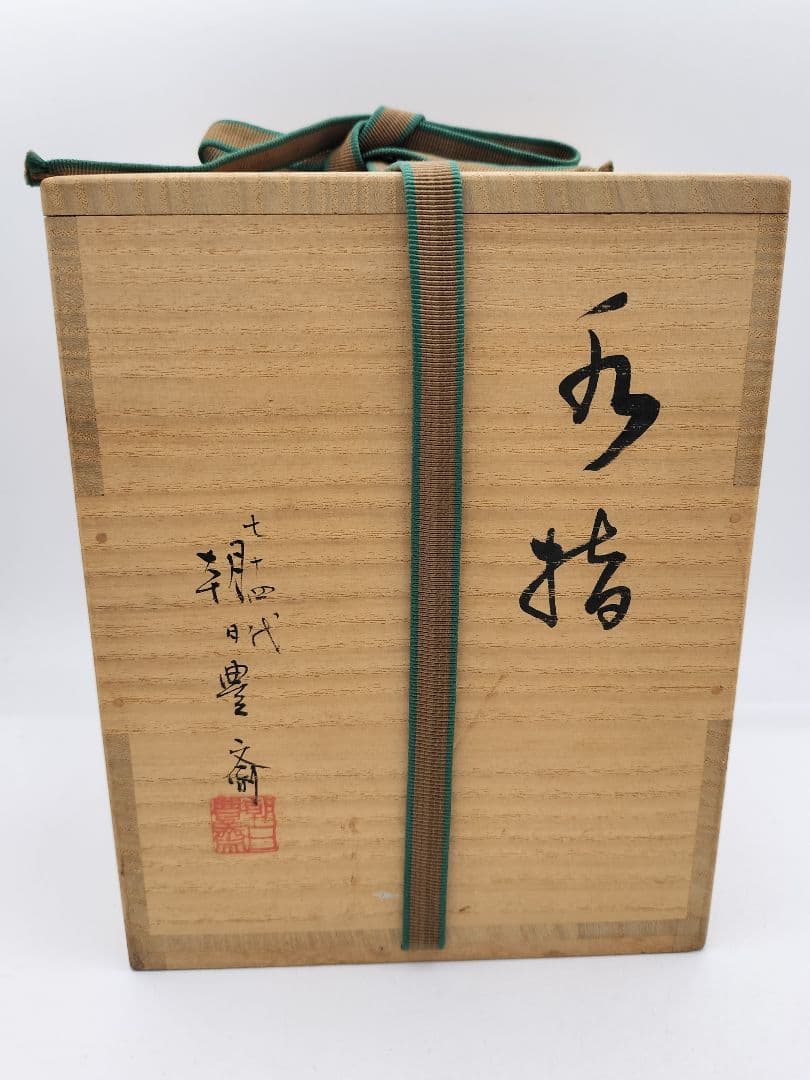 水指
七十四代
朝日豊斎
朝日
豊斎